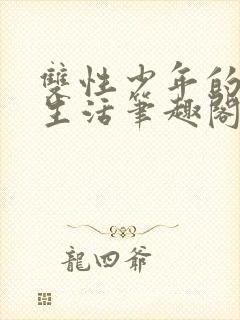 雙性少年的
生活筆趣閣
龍四爺